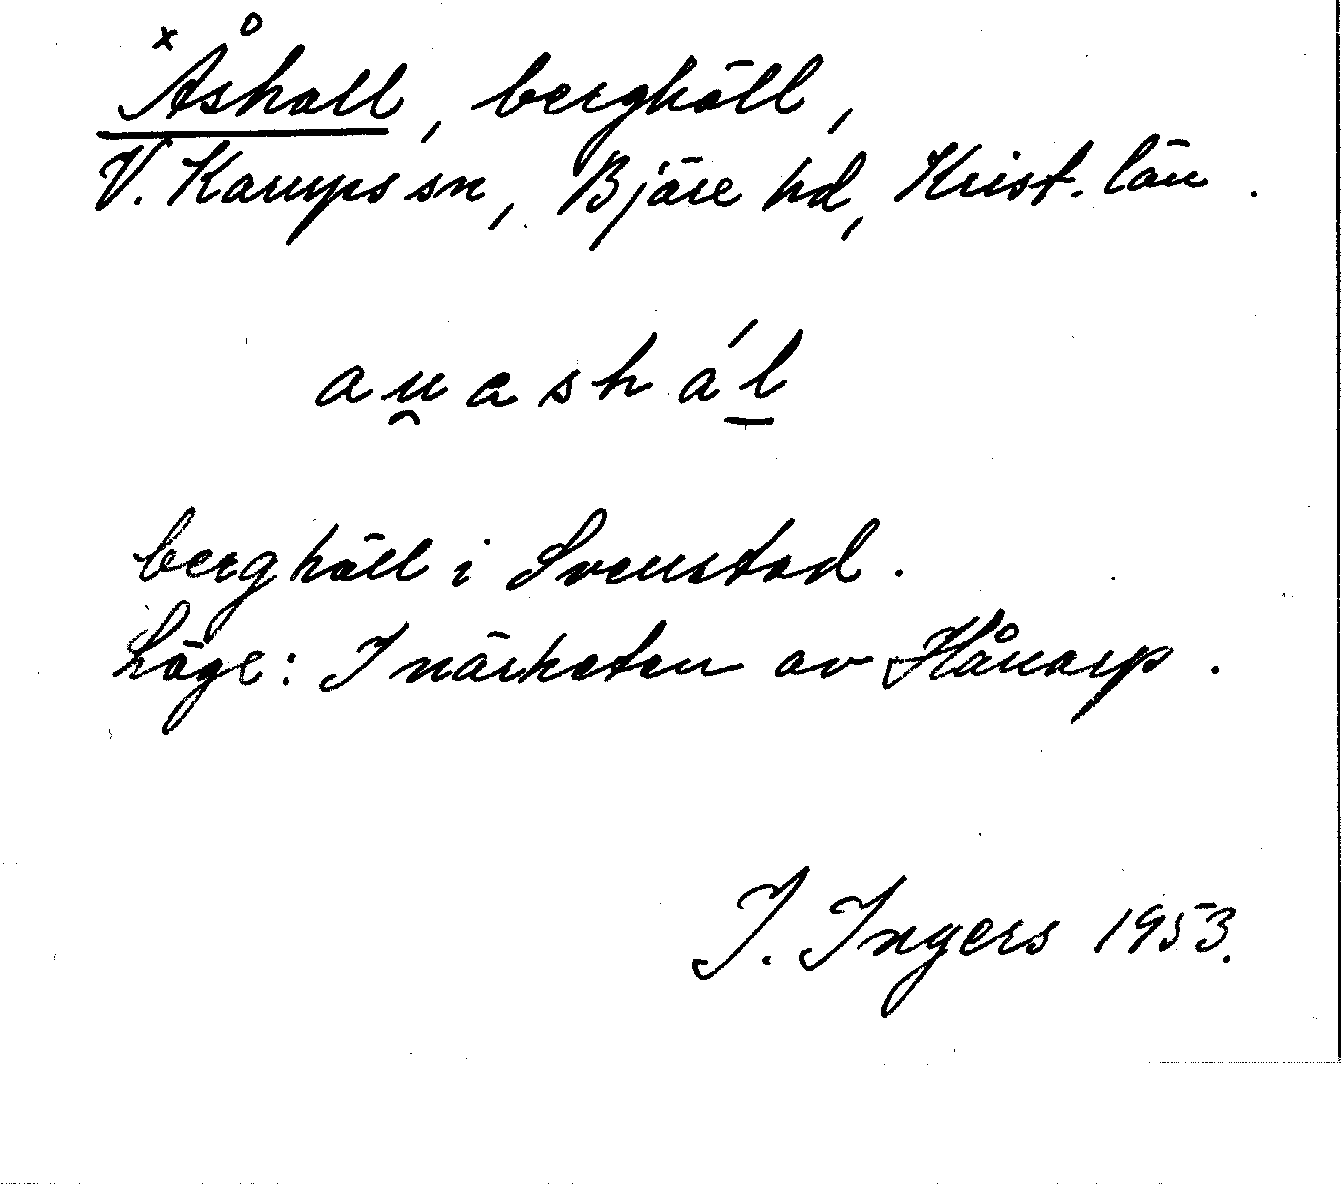 x Åshall, berghäll,
V. Karups sn, Bjäre hd, Krist. län.
au̯ashál̲
berghäll i Svenstad.
Läge: I närheten av Hånarp.
I. Ingers 1953.